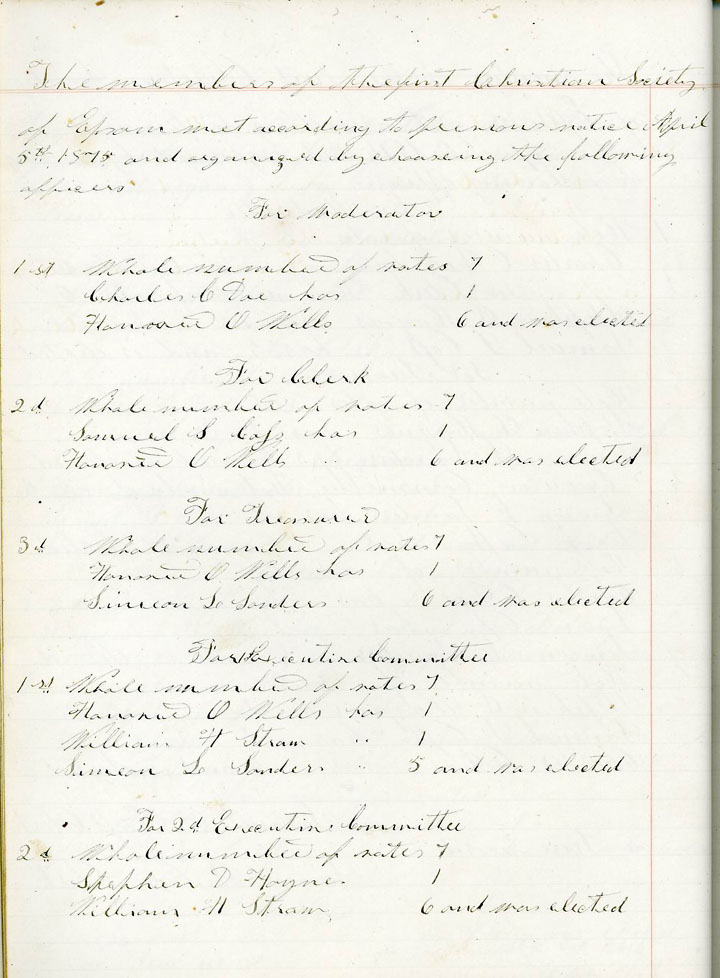 The members of the first Christian Society
of Epsom met according to previous notice April
5th, 1875 and organized by choosing the following
officers
For Moderator
1st Whole number of votes 7
Charles C Doe has 1
O Wells 6 and was elected
For Clerk
2d Whole number of votes 7
Samuel S has 1
O Wells " 6 and was elected
For Treasurer
3d Whole number of votes 7
O Wells has 1
Simeon L Sanders 6 and was elected
For Executive Committee
1st Whole number of votes 7
O Wells has 1
William H Straw " 1
Simeon L Sanders " 5 and was elected
For 2d Executive Committee
2d Whole number of votes 7
D Haynes 1
William H Straw 6 and was elected